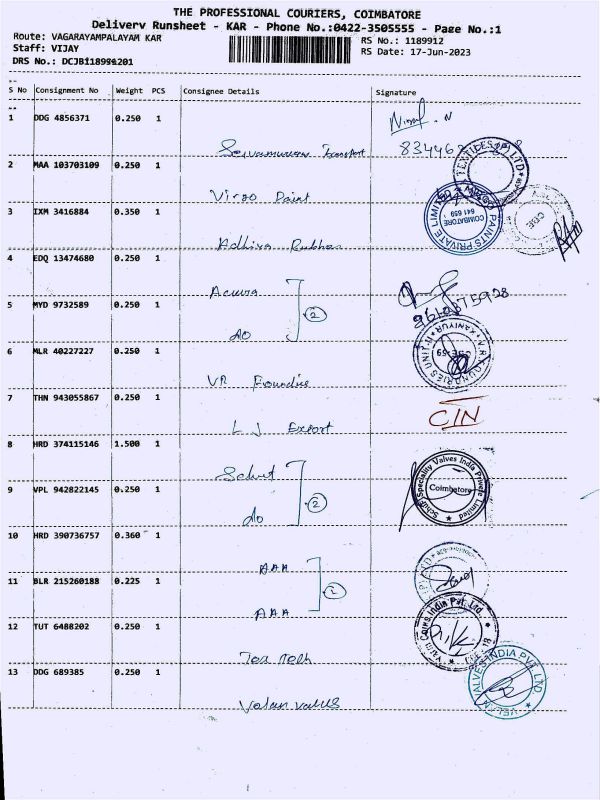 THE PROFESSIONAL COURIERS, COIMBATORE
Delivery Runsheet - KAR - Phone No.:0422-3505555 - Page No.:1
Route: VAGARAYAMPALAYAM KAR
RS No.: 1189912
Staff: VIJAY
RS Date: 17-Jun-2023
S No Consignment No Weight PCS Consignee Details Signature
1 DDG 4856371 0.250 1
Transport
2 MAA 103703109 0.250 1
Virgo Paint
3 IXM 3416884 0.350 1
Adhiya Rubber
4 EDQ 13474680 0.250 1
Acura
5 MYD 9732589 0.250 1
do
2
6 MLR 40227227 0.250 1
VR Foundries
7 THN 943055867 0.250 1
L J Export
CIN
8 HRD 374115146 1.500 1
9 VPL 942822145 0.250 1
do
2
Schuf Speciality Valves India Private Limited
Coimbatore
10 HRD 390736757 0.360 1
AAA
11 BLR 215260188 0.225 1
AAA
2
12 TUT 6488202 0.250 1
Tech
13 DDG 689385 0.250 1
Velan valves
VELAN VALVES INDIA PVT. LTD.